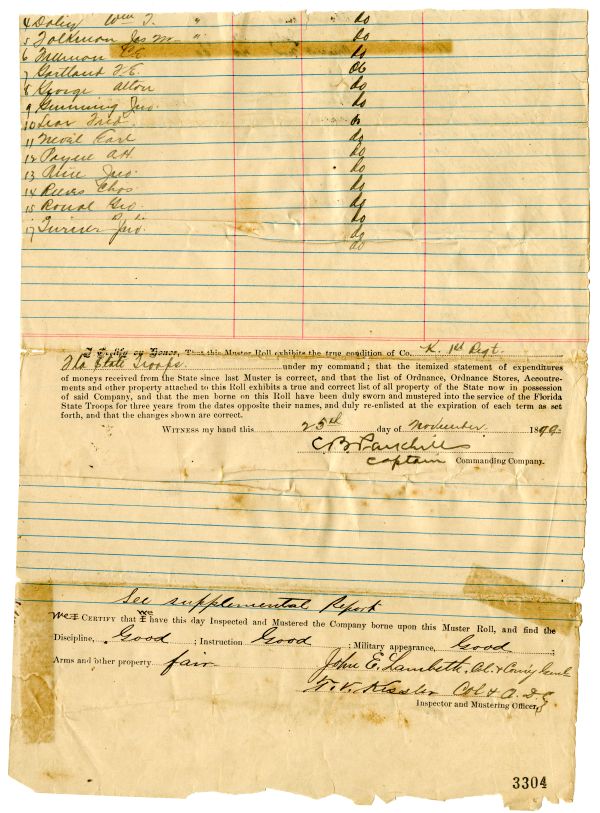 4 Doley Wm T. " do
5 Folkman Jas M " do
6 do
7 Gartland F.E. do
8 George Alton do
9 Gumming Jno. do
10 Lear Fred do
11 Nevil Earl do
12 Payne A H do
13 Jno. do
14 Reeves Chas. do
15 Geo. do
do
17 Turner Jno. do
do
I Certify on Honor, That this Muster Roll exhibits the true condition of Co. K. 1st Regt.
Fla State Troops. under my command; that the itemized statement of expenditures
of moneys received from the State since last Muster is correct, and that the list of Ordnance, Ordnance Stores, Accoutre-
ments and other property attached to this Roll exhibits a true and correct list of all property of the State now in possession
of said Company, and that the men borne on this Roll have been duly sworn and mustered into the service of the Florida
State Troops for three years from the dates opposite their names, and duly re-enlisted at the expiration of each term as set
forth, and that the changes shown are correct.
Witness my hand this 25th day of November 1899
C. B.
Captain Commanding Company.
See supplemental Report
We I Certify that we I have this day Inspected and Mustered the Company borne upon this Muster Roll, and find the
Discipline, Good ; Instruction Good ; Military appearance, Good ;
Arms and other property fair
John E. Lambeth, Col. &
F. V. Kessler Col & A. D. C
Inspector and Mustering Officer,
3304